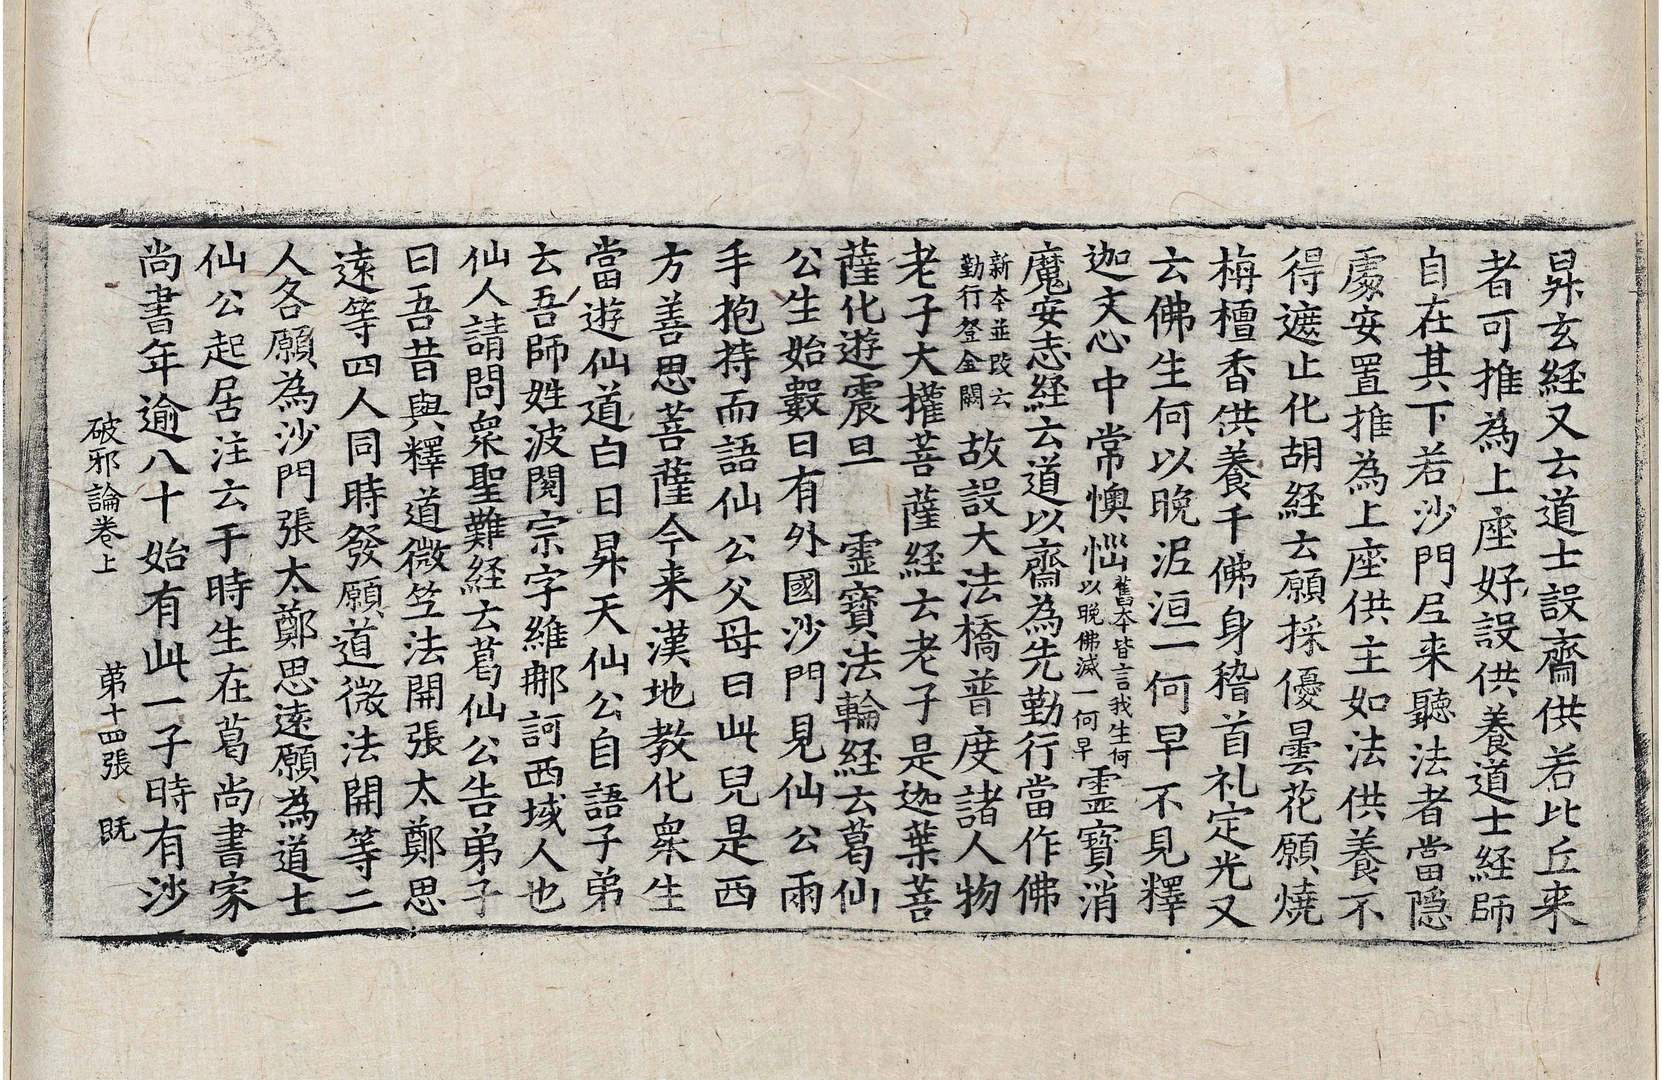 昇玄経又云道士設齋供若比丘来
者可推為上座好設供養道士経師
自在其下若沙門尼来聽法者當隠
處安置推為上座供主如法供養不
得遮止化胡経云願採優曇花願燒
栴檀香供養千佛身稽首礼定光又
云佛生何以晚泥洹一何早不見釋
迦文心中常懊惱舊本皆言我生何以晚佛滅一何早靈寶消
魔安志経云道以齋為先勤行當作佛
新本並改云勤行登金闕故設大法橋普度諸人物
老子大權菩薩経云老子是迦葉菩
薩化遊震旦　靈寶法輪経云葛仙
公生始數日有外國沙門見仙公兩
手抱持而語仙公父母曰此兒是西
方善思菩薩今来漢地教化衆生
當遊仙道白日昇天仙公自語子弟
云吾師姓波閱宗字維那訶西域人也
仙人請問衆聖難経云葛仙公告弟子
曰吾昔與釋道微竺法開張太鄭思
遠等四人同時發願道微法開等二
人各願為沙門張太鄭思遠願為道士
仙公起居注云于時生在葛尚書家
尚書年逾八十始有此一子時有沙
破邪論卷上　第十四張　既